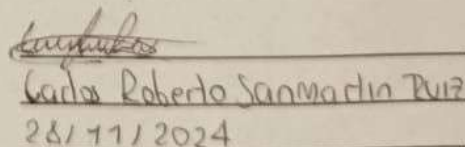 Carlos Roberto Sanmartin Ruiz
28/11/2024